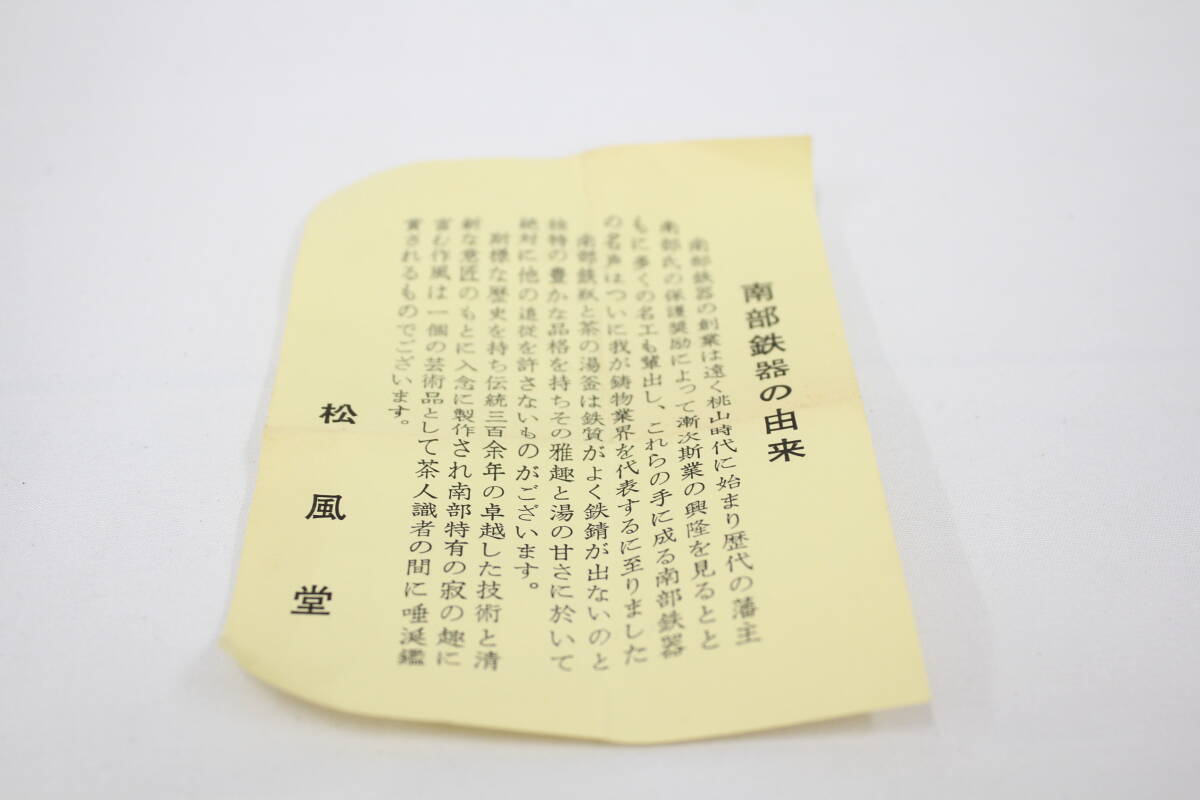 南部鉄器の由来
南部鉄器の創業は遠く桃山時代に始まり歴代の藩主
南部氏の保護奨励によって漸次斯業の興隆を見るとと
もに多くの名工も輩出し、これらの手に成る南部鉄器
の名声はついに我が鋳物業界を代表するに至りました
南部鉄瓶と茶の湯釜は鉄質がよく鉄錆が出ないのと
独特の豊かな品格を持ちその雅趣と湯の甘さに於いて
絶対に他の追従を許さないものがございます。
斯様な歴史を持ち伝統三百余年の卓越した技術と清
新な意匠のもとに入念に製作され南部特有の寂の趣に
富む作風は一個の芸術品として茶人識者の間に唾涎鑑
賞されるものでございます。
松風堂